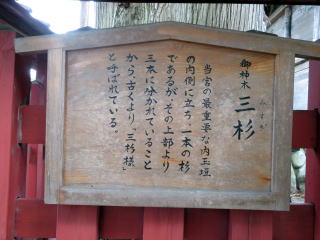 御神木 三杉
みすぎ
当宮の最重要な内玉垣
の内側に立ち、一本の杉
であるが、その上部より
三本に分かれていること
から、古くより、「三杉様」
と呼ばれている。